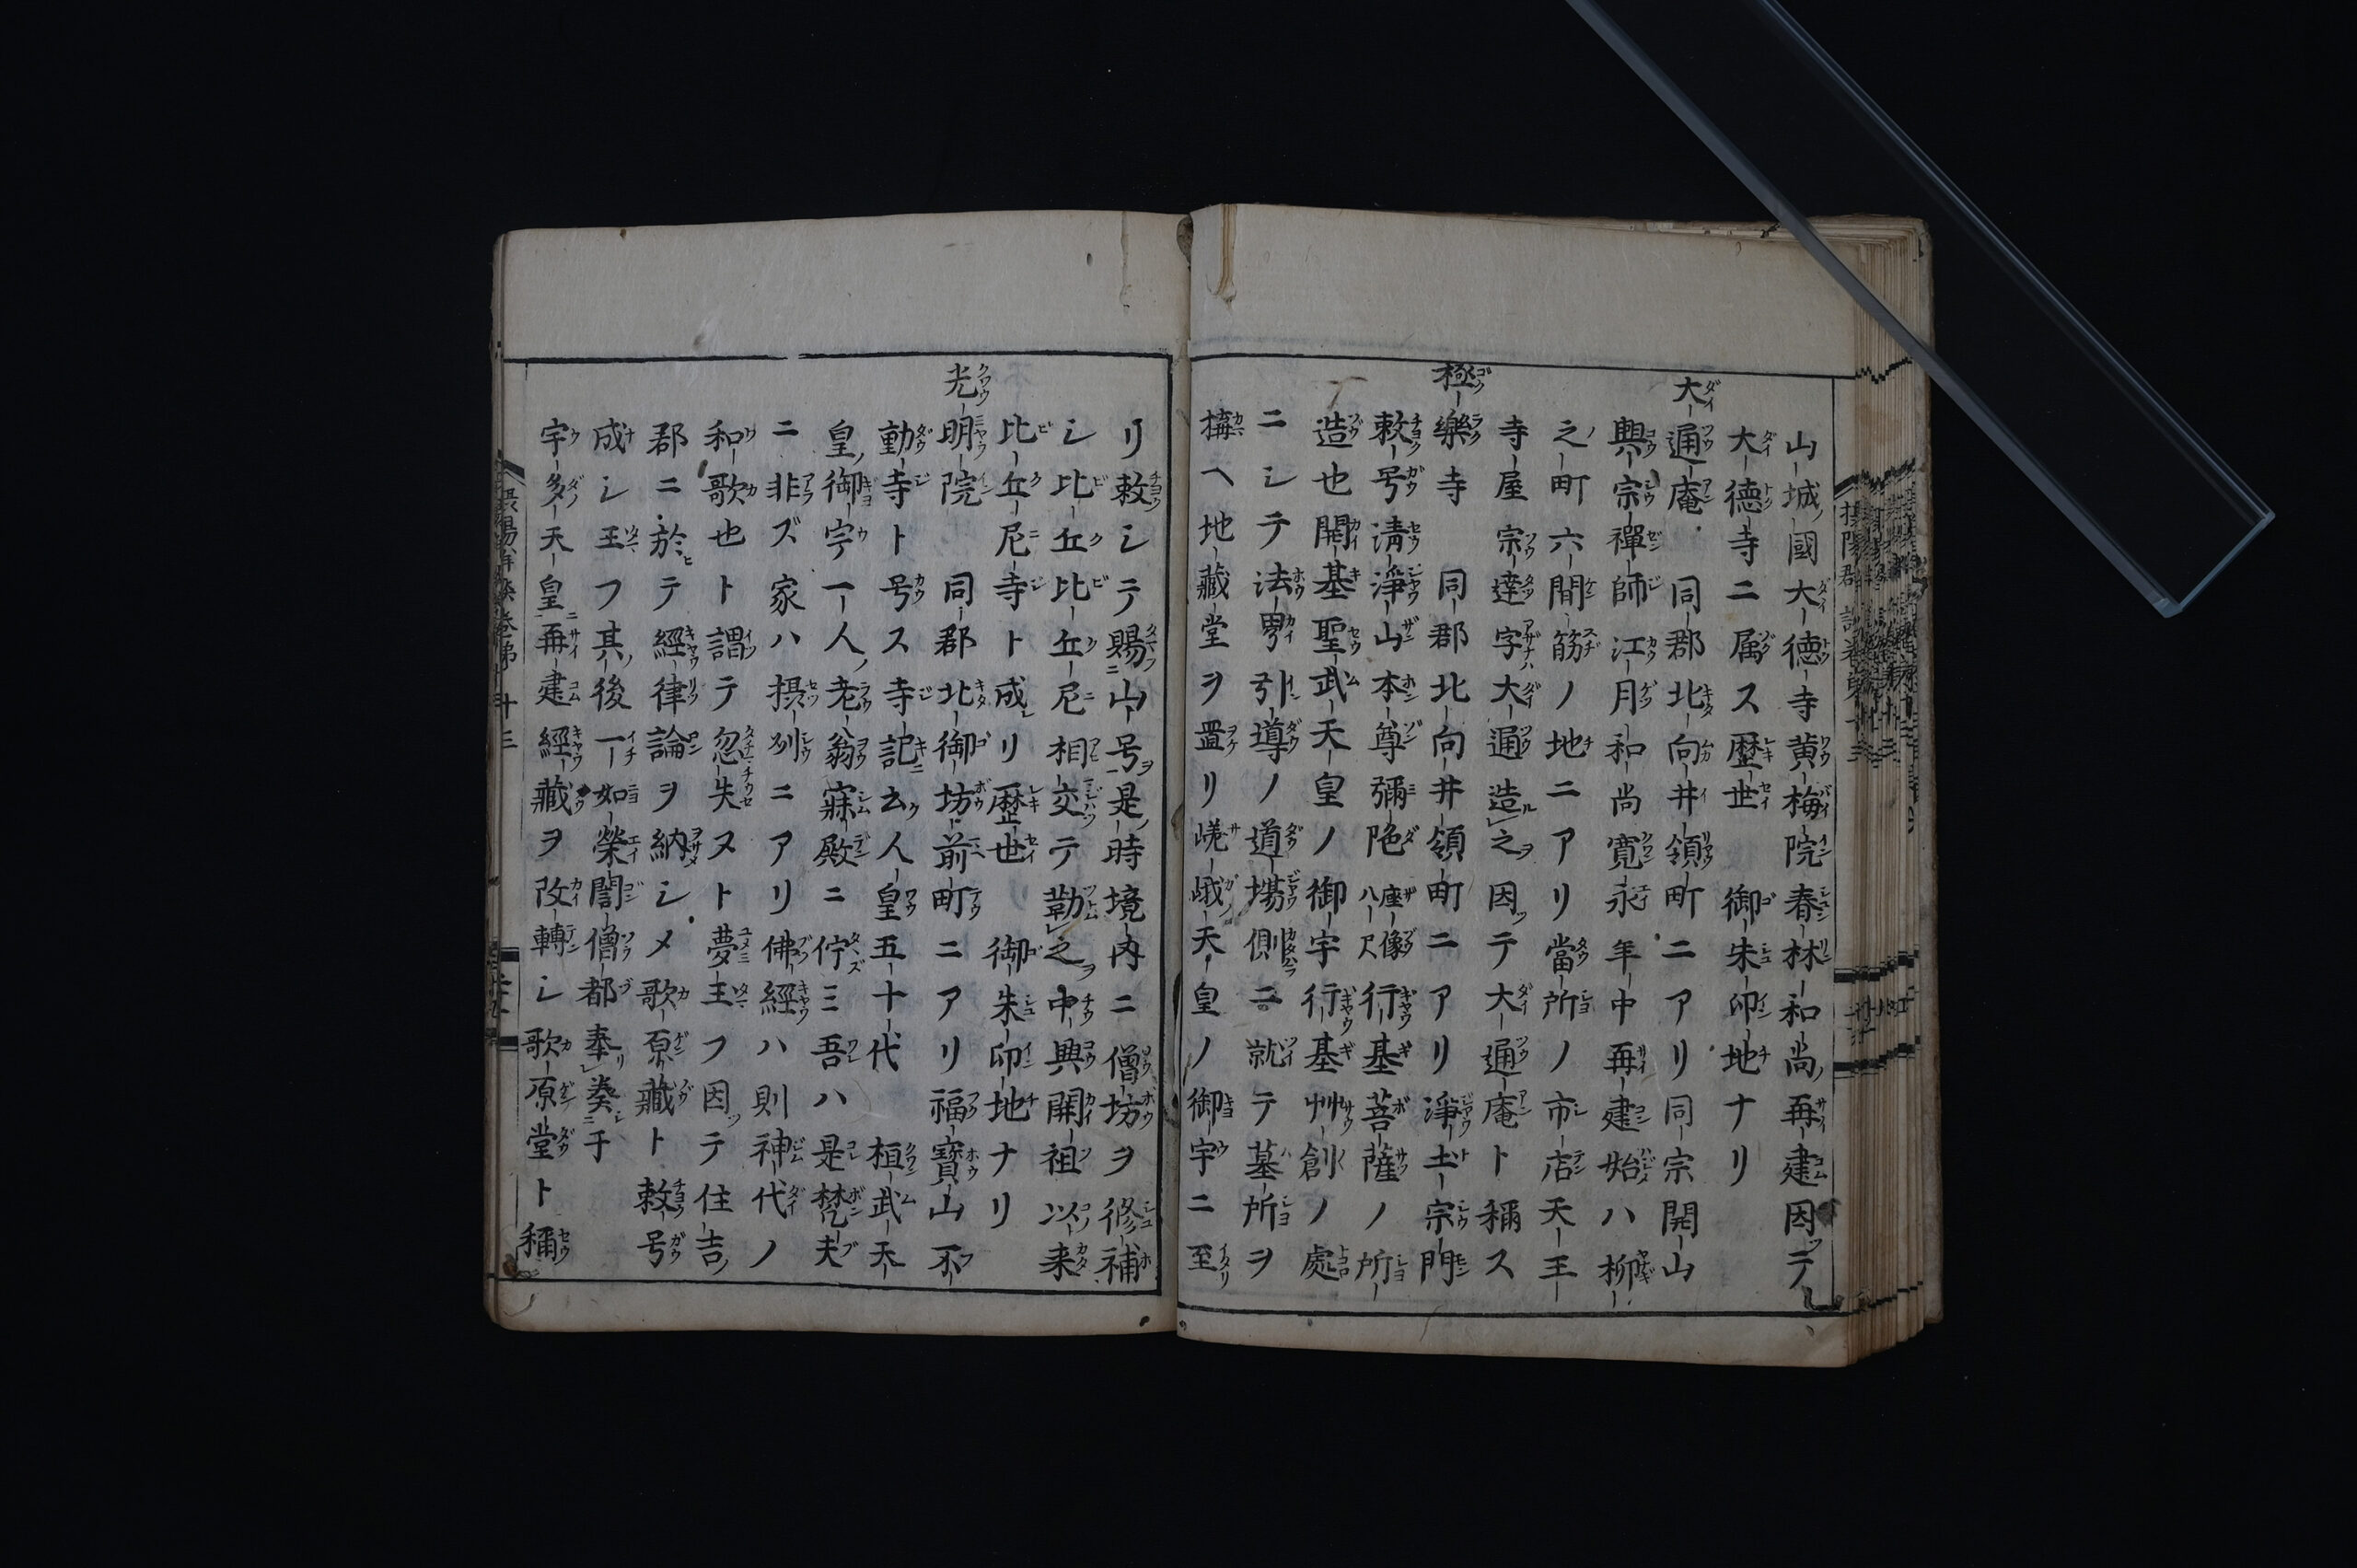 山城國大徳寺黄梅院春林和尚再建因テ
大徳寺ニ属ス歴世 御朱印地ナリ
大通庵 同郡北向井領町ニアリ同宗開山
興宗禪師江月和尚寛永年中再建始ハ柳
之町六間筋ノ地ニアリ當所ノ市店天王
寺屋宗達字大通造之因テ大通庵ト稱ス
極樂寺 同郡北向井領町ニアリ淨土宗門
敕号淸淨山本尊彌陁座像八尺行基菩薩ノ所
造也開基聖武天皇ノ御宇行基艸創ノ處
ニシテ法界引導ノ道塲側ニ就テ墓所ヲ
構ヘ地藏堂ヲ置リ嵯峨天皇ノ御宇ニ至
リ敕シテ賜山号是時境内ニ僧坊ヲ修補
シ比丘比丘尼相交テ勤之中興開祖以来
比丘尼寺ト成リ歴世 御朱印地ナリ
光明院 同郡北御坊前町ニアリ福寳山不
動寺ト号ス寺記云人皇五十代 桓武天
皇御宇一人老翁寐殿ニ佇ミ吾ハ是梵夫
ニ非ズ家ハ摂列ニアリ佛經ハ則神代ノ
和歌也ト謂テ忽失ヌト夢王フ因テ住吉
郡ニ於テ經律論ヲ納シメ歌原藏ト敕号
成シ王フ其後一如榮誾僧都奉奏于
宇多天皇再建經藏ヲ改轉シ歌原堂ト稱